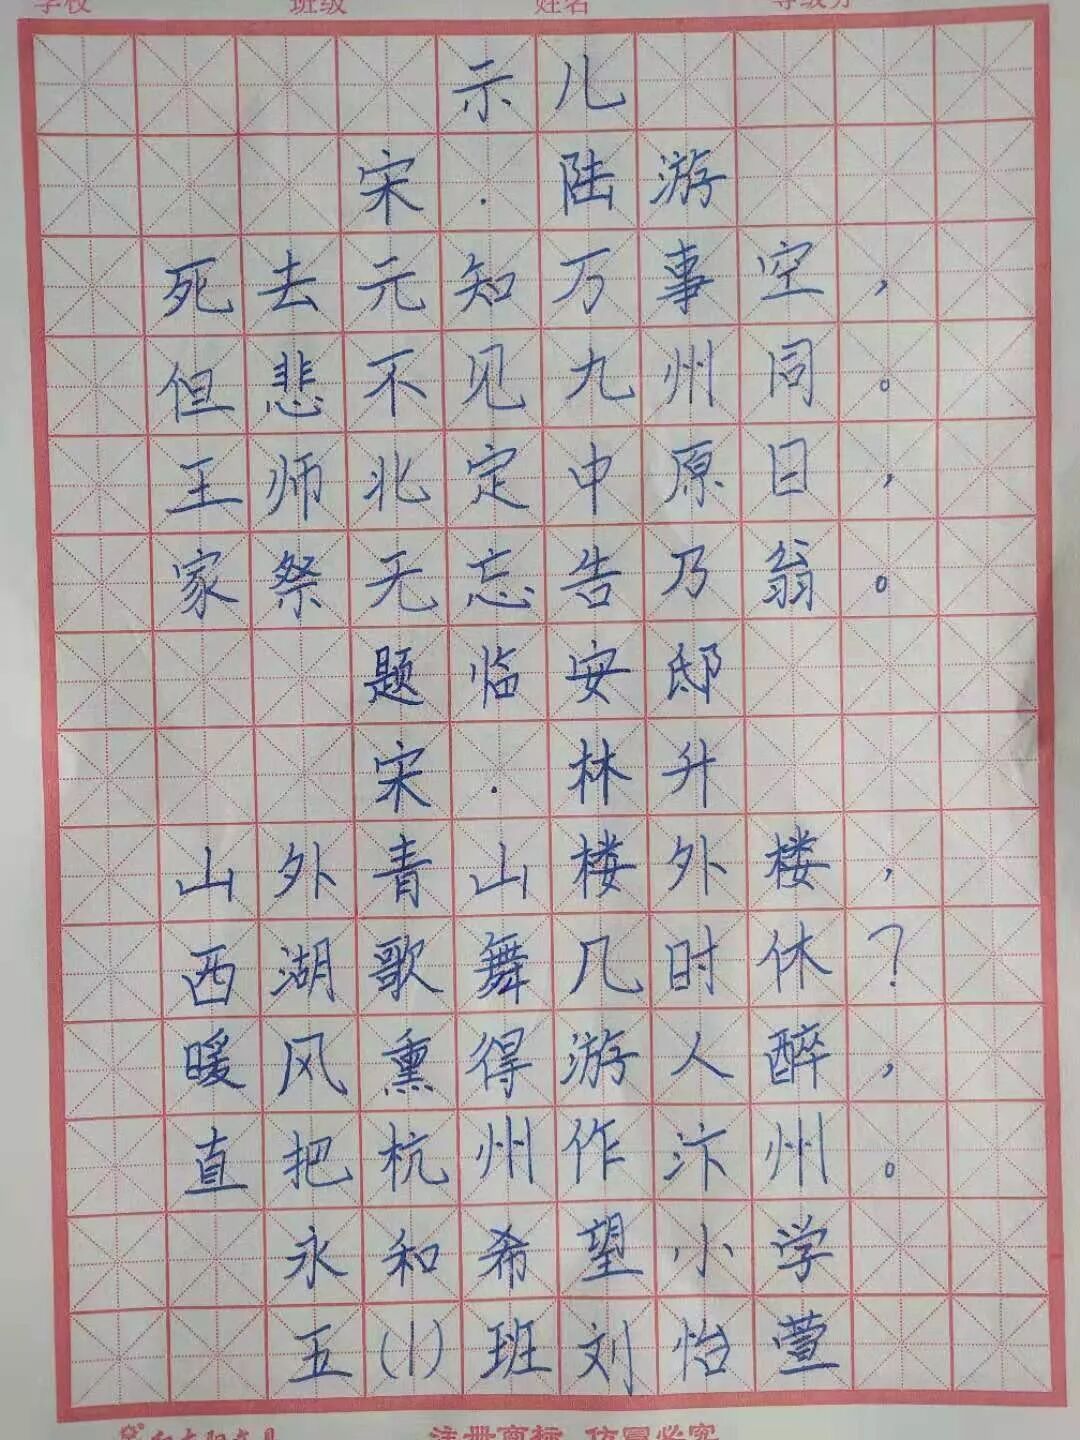 学校 班级 姓名 等级分
示儿
宋·陆游
死去元知万事空，
但悲不见九州同。
王师北定中原日，
家祭无忘告乃翁。
题临安邸
宋·林升
山外青山楼外楼，
西湖歌舞几时休？
暖风熏得游人醉，
直把杭州作汴州。
永和希望小学
五(1)班刘怡萱
注册商标 仿冒必究